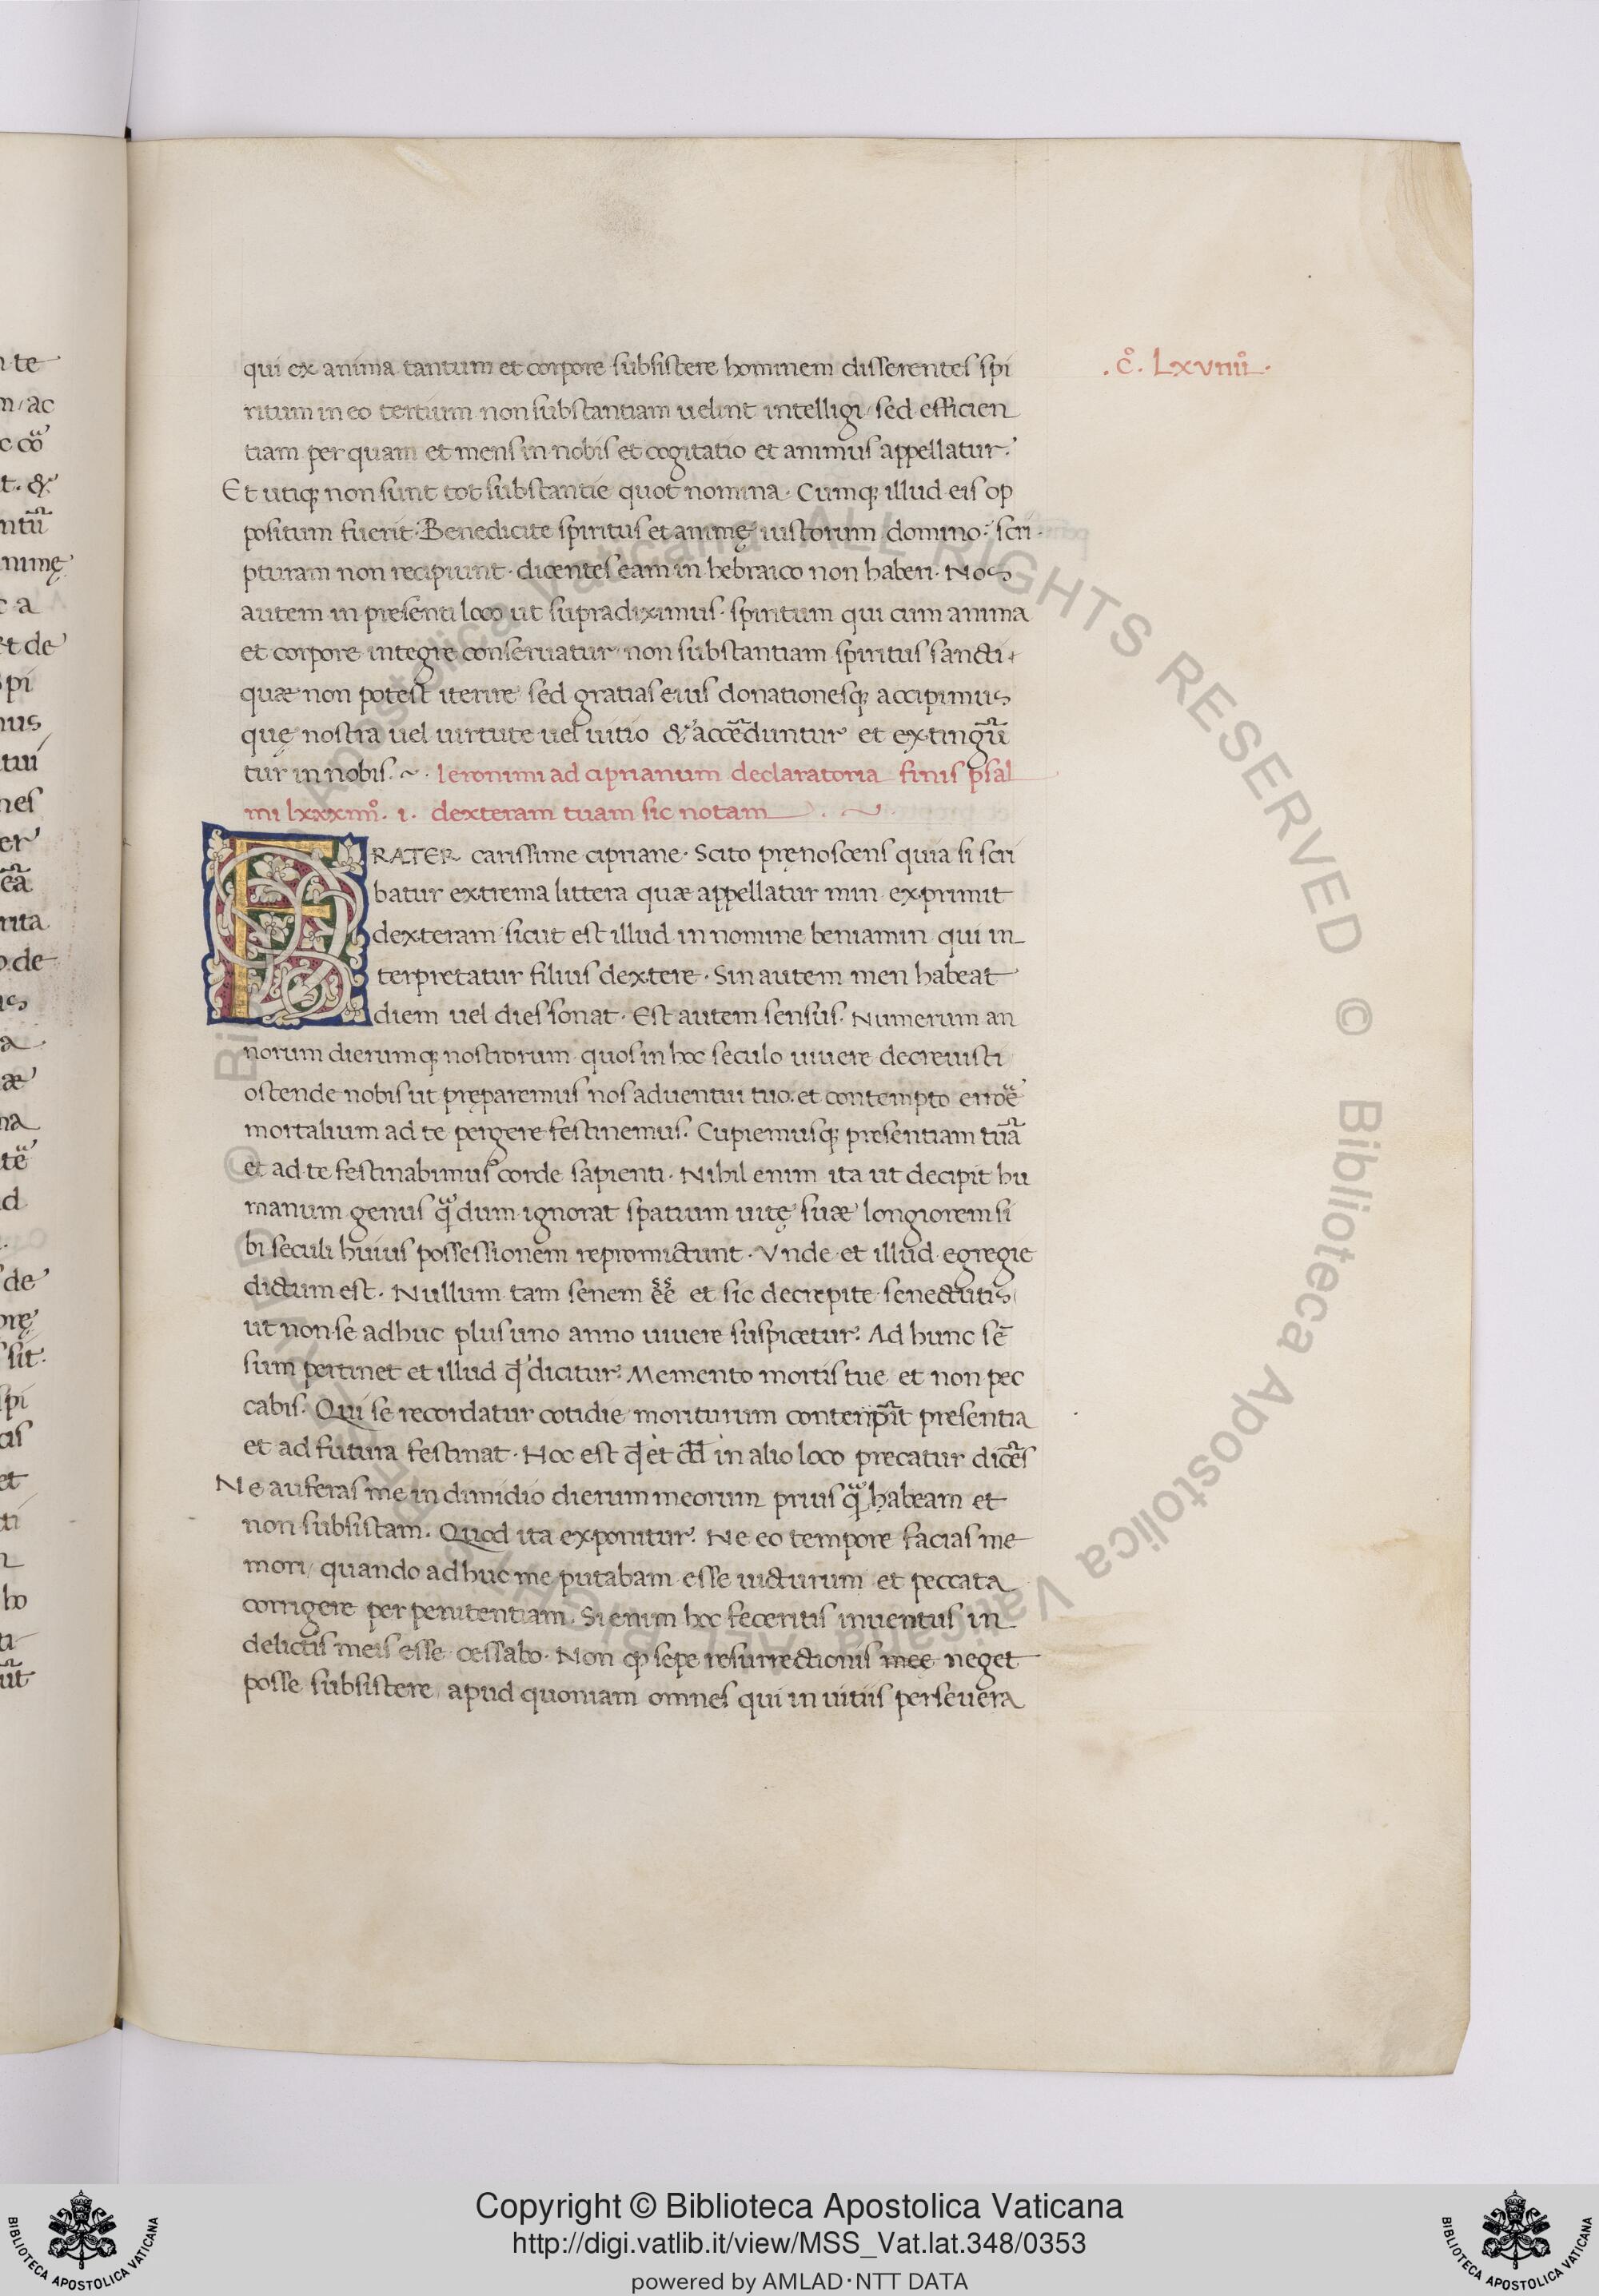 qui ex anima tantum et corpore subsistere hominem disserentes spi
ritum in eo tertium non substantiam uelint intelligi / sed efficien
tiam per quam et mens in nobis et cogitatio et animus appellatur.
Et utiqꝫ non sunt tot substantie quot nomina. Cumqꝫ illud eis op
positum fuerit. Benedicite spiritus et animę iustorum domino: scri
pturam non recipiunt. dicentes eam in hebraico non haberi. Nos
autem in presenti loco ut supradiximus. spiritum qui cum anima
et corpore integre conseruatur non substantiam spiritus sancti
quæ non potest iterire sed gratias eius donationesqꝫ accipimus
quę nostra uel uirtute uel uitio & accēduntur et extingūu
tur in nobis. ~. Ieronimi ad ciprianum declaratoria finis psal
mi lxxxiiii°. i. dexteram tuam sic notam
.c°. Lxviiii°.
FRATER carissime cipriane. Scito pręnoscens quia si scri
batur extrema littera quæ appellatur min exprimit
dexteram sicut est illud in nomine beniamin qui in
terpretatur filius dextere. Sin autem men habeat
diem uel dies sonat. Est autem sensus. Numerum an
norum dierumqꝫ nostrorum quos in hoc seculo uiuere decreuisti
ostende nobis ut pręparemus nos aduentui tuo. et contempto errore
mortalium ad te pergere festinemus. Cupiemusqꝫ presentiam tuā
et ad te festinabimus corde sapienti. Nihil enim ita ut decipit hu
manum genus qͣ dum ignorat spatium uitę suæ longiorem si
bi seculi huius possessionem repromictunt. Vnde et illud egregie
dictum est. Nullum tam senem eē et sic decrepite senectutis
ut non se adhuc plus uno anno uiuere suspicetur. Ad hunc sē
sum pertinet et illud qd̄ dicitur. Memento mortis tue et non pec
cabis. Qui se recordatur cotidie moriturum contenpn̄it presentia
et ad futura festinat. Hoc est qd̄ et dd̄ in alio loco precatur dicēs
Ne auferas me in dimidio dierum meorum prius qͣ habeam et
non subsistam. Quod ita exponitur. Ne eo tempore facias me
mori / quando adhuc me putabam esse uicturum et peccata
corrigere per penitentiam. Si enim hoc feceritis inuentus in
delictis meis esse cessabo. Non ꝙ sepe resurrectionis mee neget
posse subsistere apud quoniam omnes qui in uitiis perseuera
Copyright © Biblioteca Apostolica Vaticana
http://digi.vatlib.it/view/MSS_Vat.lat.348/0353
powered by AMLAD·NTT DATA
BIBLIOTECA APOSTOLICA VATICANA
BIBLIOTECA APOSTOLICA VATICANA